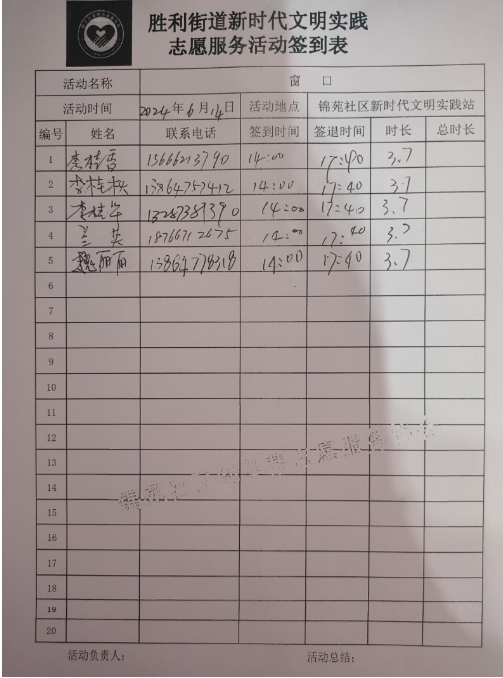 胜利街道新时代文明实践
志愿服务活动签到表
活动名称 窗 口
活动时间 2024年6月14日 活动地点 锦苑社区新时代文明实践站
编号 姓名 联系电话 签到时间 签退时间 时长 总时长
1 李桂香 15666213790 14:00 17:40 3.7
2 李桂秋 13864757412 14:00 17:40 3.7
3 李桂 14:00 17:40 3.7
4 兰英 18766712675 14:00 17:40 3.7
5 魏丽丽 13864778318 14:00 17:40 3.7
6
7
8
9
10
11
12
13
14
15
16
17
18
19
20
活动负责人: 活动总结: